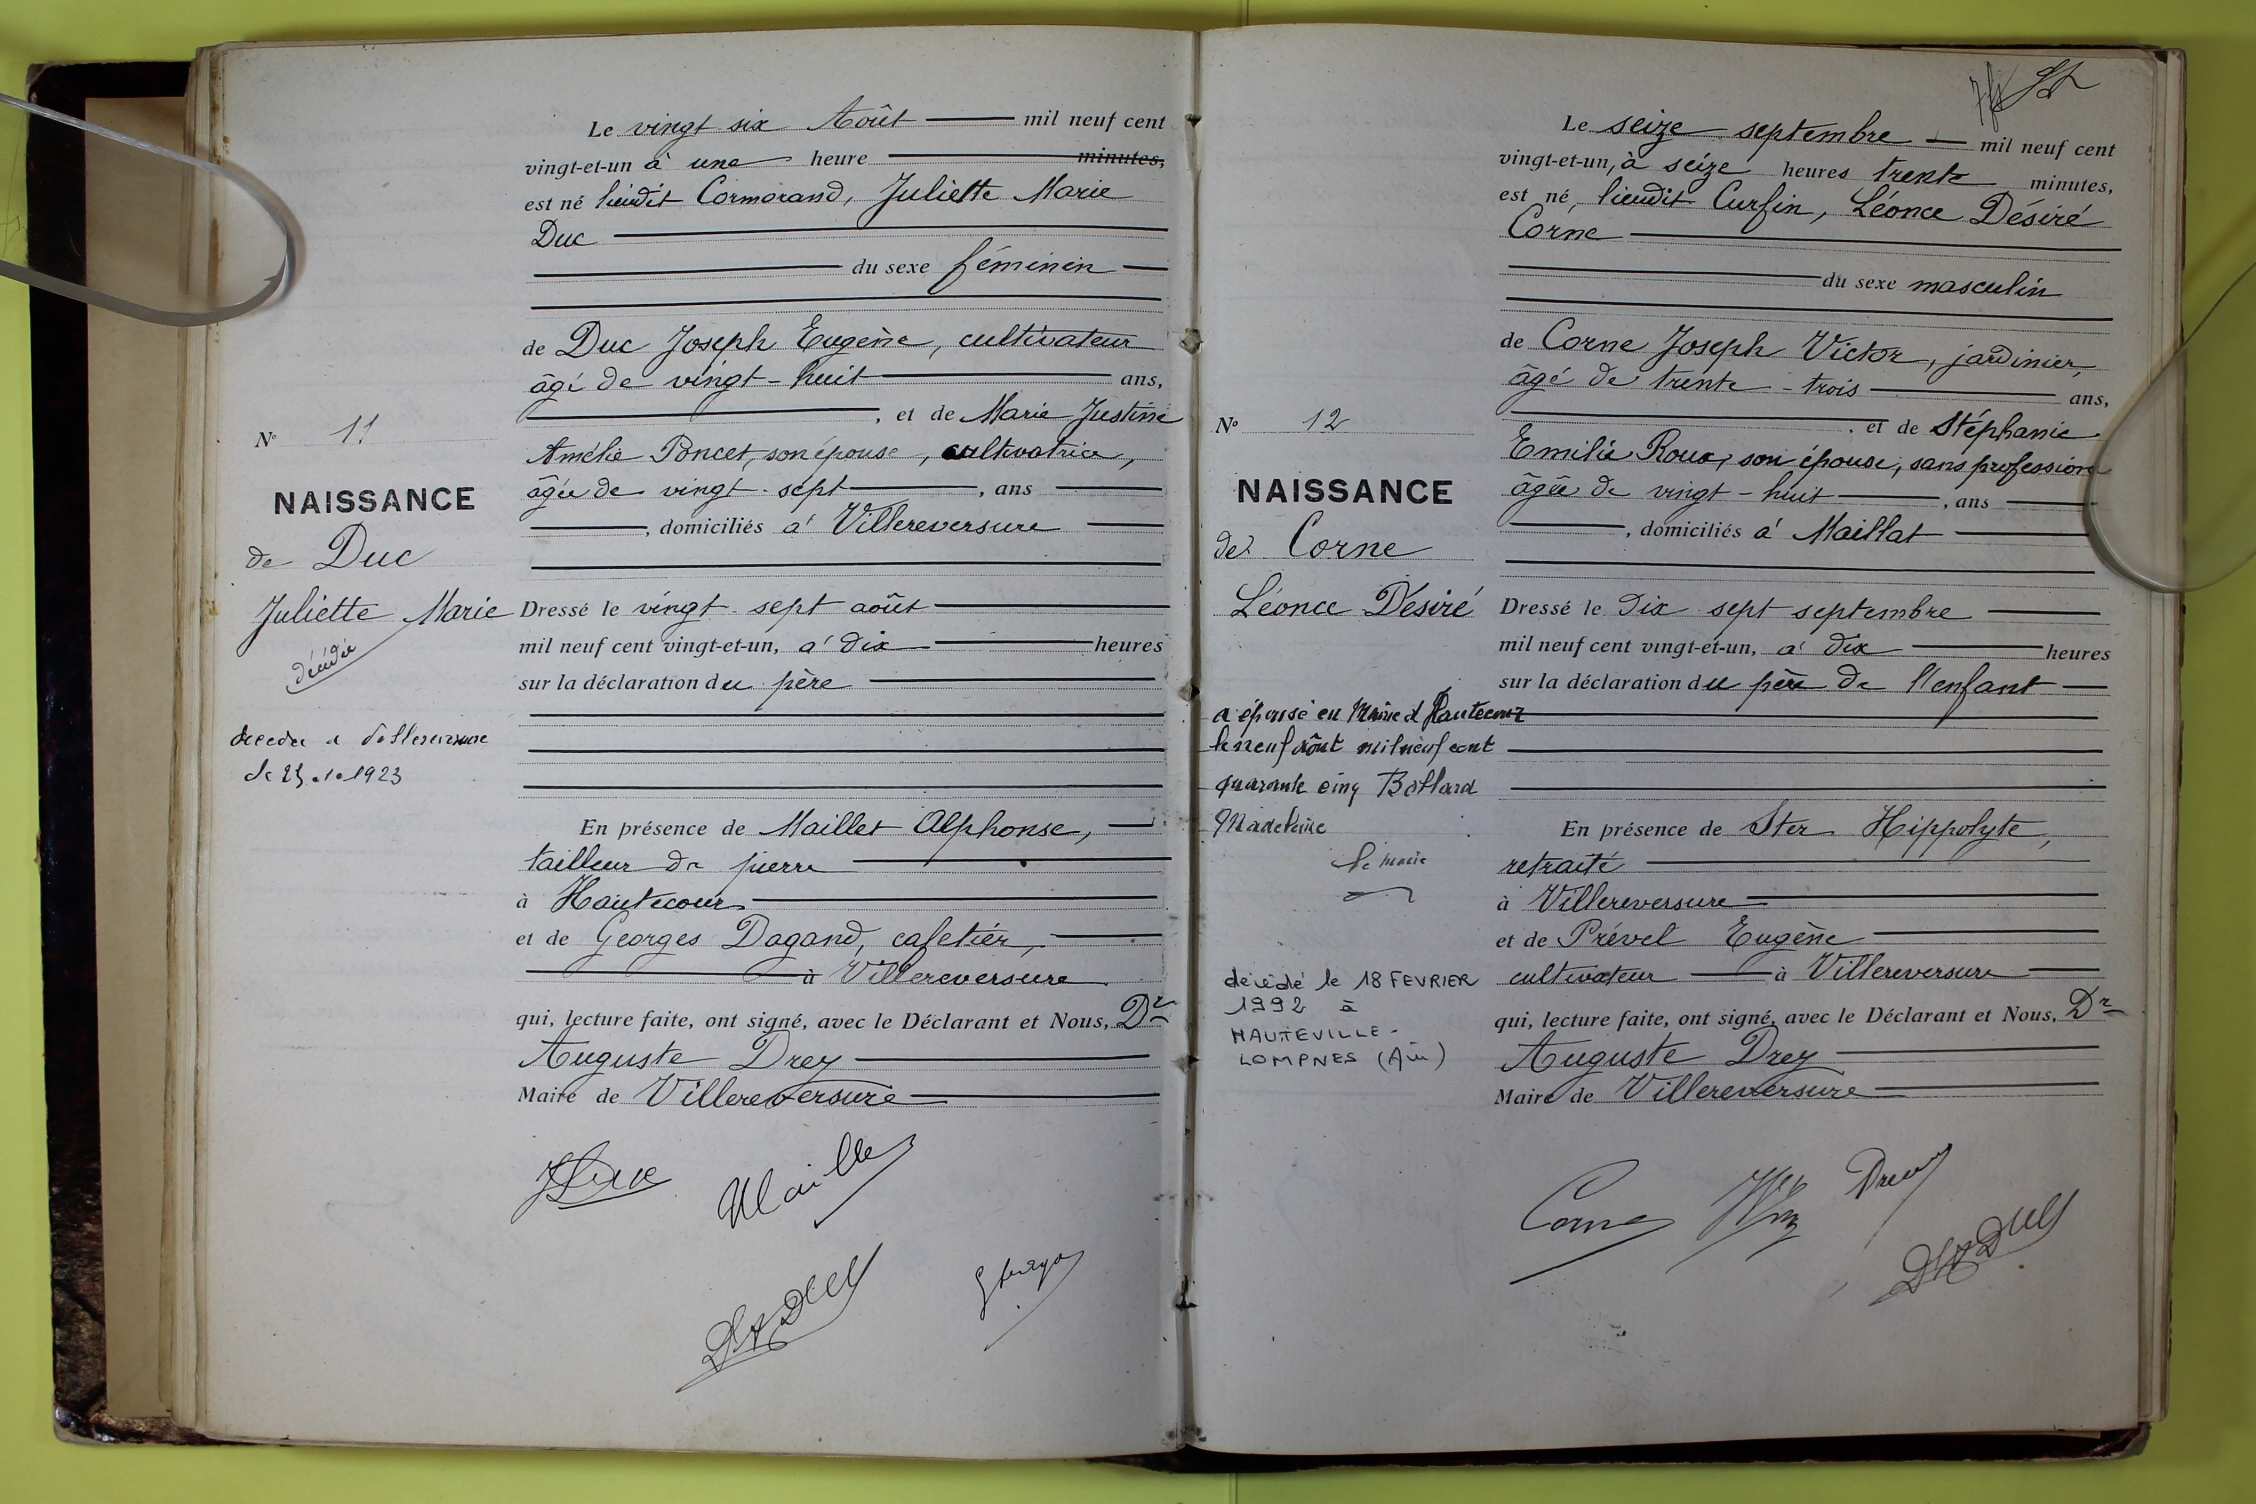 Le vingt six Août mil neuf cent
vingt-et-un à une heure minutes,
est né lieudit Cormorand, Juliette Marie
Duc
du sexe féminin
de Duc Joseph Eugène, cultivateur
âgé de vingt-huit ans,
, et de Marie Justine
Amélie Poncet, son épouse, cultivatrice,
âgée de vingt-sept, ans
, domiciliés à Villereversure
Dressé le vingt sept août
mil neuf cent vingt-et-un, à dix heures
sur la déclaration du père
En présence de Maillet Alphonse,
tailleur de pierre
à Hautecour
et de Georges Dagand, cafetier,
à Villereversure
qui, lecture faite, ont signé, avec le Déclarant et Nous, Dr
Auguste Drey
Maire de Villereversure
N° 11
NAISSANCE
de Duc
Juliette Marie
décédée
décédée à Villereversure
1923
JDuc
Maillet
Le seize septembre mil neuf cent
vingt-et-un, à seize heures trente minutes,
est né, lieudit Curfin, Léonce Désiré
Corne
du sexe masculin
de Corne Joseph Victor, jardinier,
âgé de trente-trois ans,
, et de Stéphanie
Emilie Roux, son épouse, sans profession
âgée de vingt-huit, ans
, domiciliés à Maillat
Dressé le dix sept septembre
mil neuf cent vingt-et-un, à dix heures
sur la déclaration du père de l'enfant
En présence de Ster Hippolyte,
retraité
à Villereversure
et de Prével Eugène
cultivateur à Villereversure
qui, lecture faite, ont signé, avec le Déclarant et Nous, Dr
Auguste Drey
Maire de Villereversure
N° 12
NAISSANCE
de Corne
Léonce Désiré
a épousé en Mairie d'Hautecour
le neuf août mil neuf cent
quarante cinq
Madeleine
le maire
décédé le 18 FEVRIER
1992 à
HAUTEVILLE-
LOMPNES (Ain)
Corne